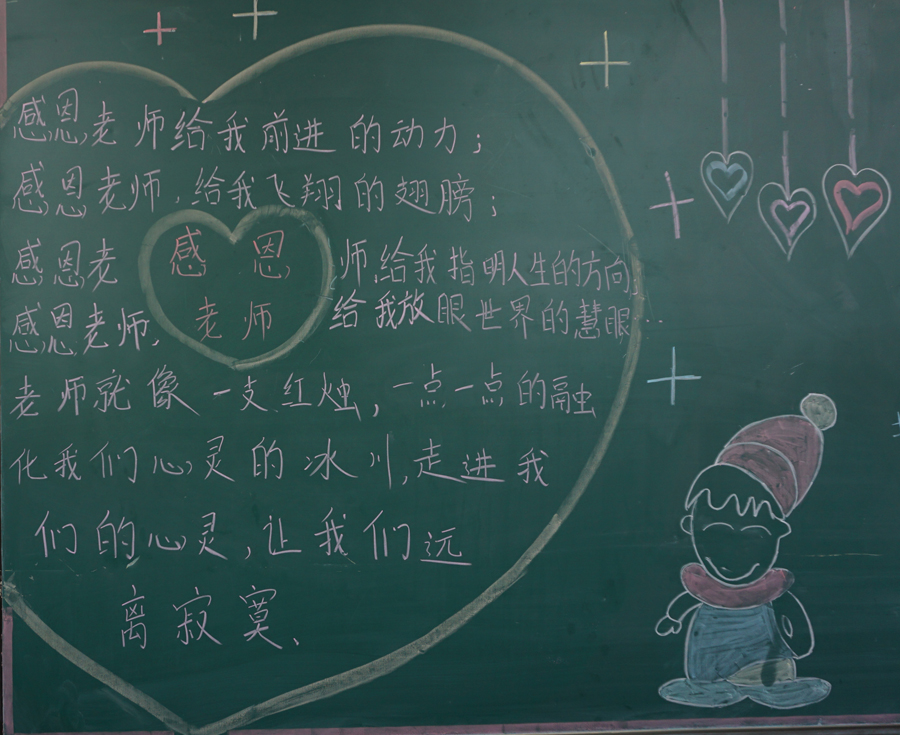 感恩老师给我前进的动力;
感恩老师,给我飞翔的翅膀;
感恩老 师,给我指明人生的方向
感恩
感恩老师, 给我放眼世界的慧眼...
老师
老师就像一支红烛,一点一点的融
化我们心灵的冰川,走进我
们的心灵,让我们远
离寂寞、